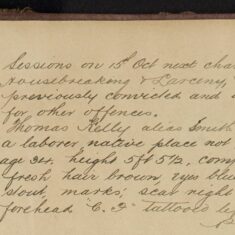 Sessions on 15th Oct next cha
Housebreaking & Larceny,
previously convicted and
for other offences.
Thomas Kelly alias Smith
a laborer, native place not
age 34, height 5ft 5½, comp
fresh hair brown, eyes blue
stout, marks; scar right
forehead "C. F" tattooed le